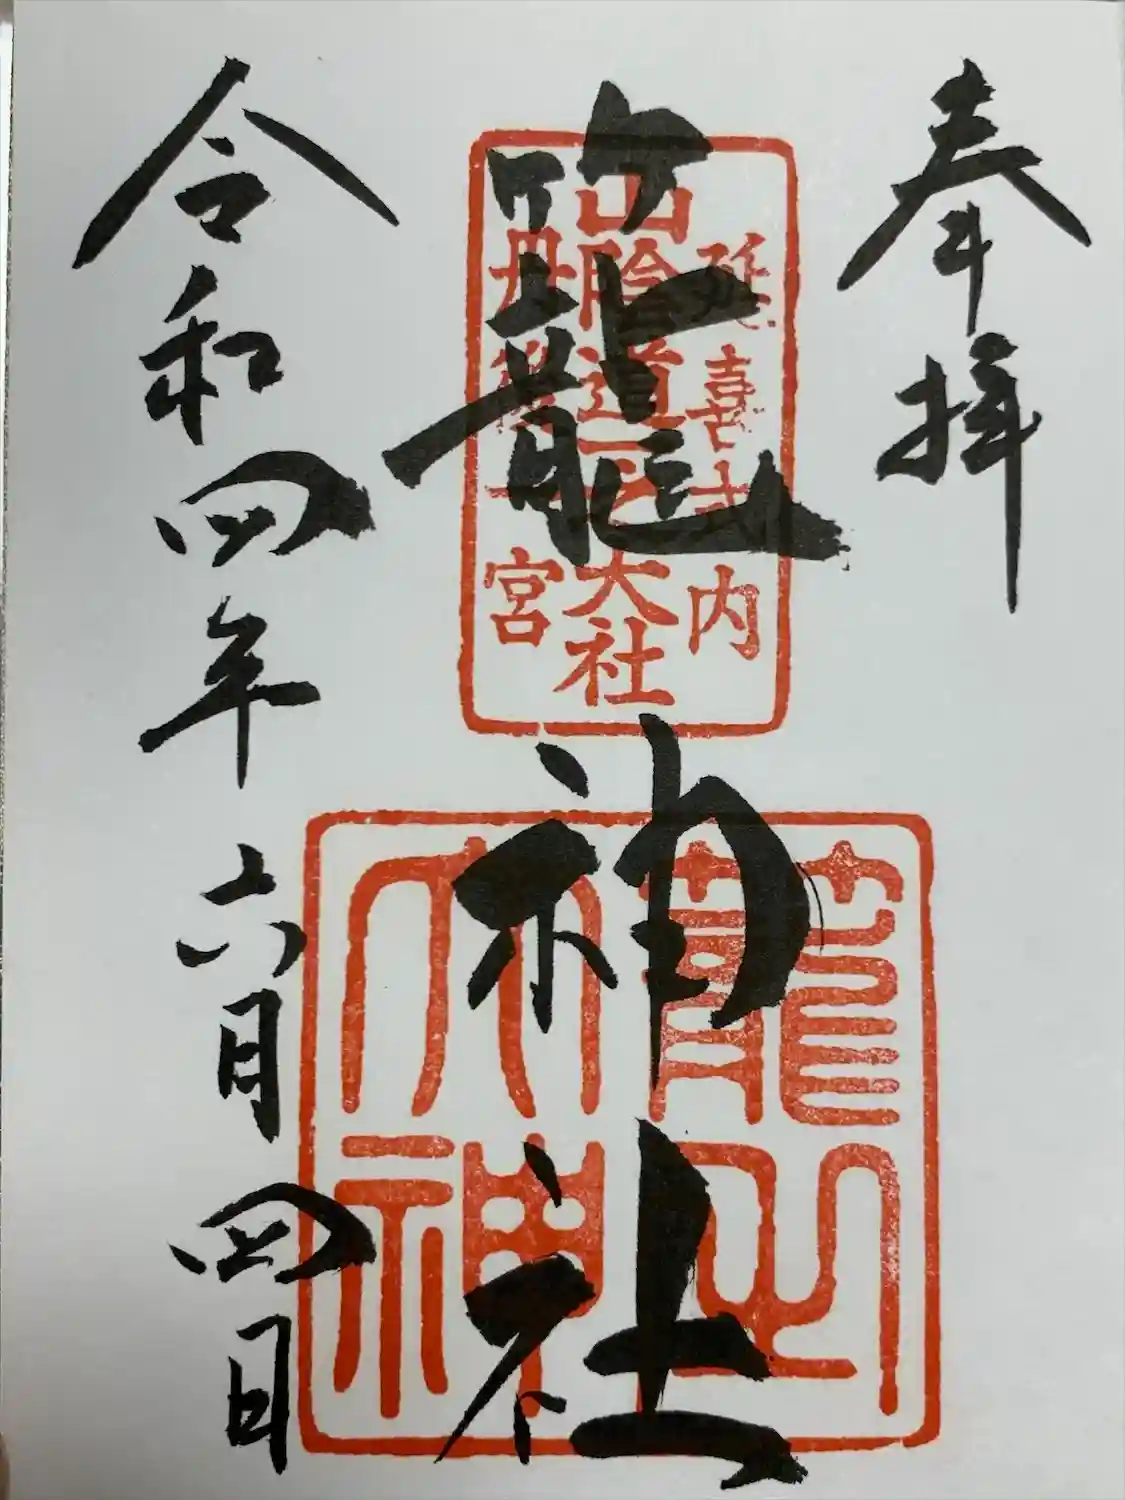 奉拝
延喜式内
山陰道一之大社
丹後一宮
籠神社
籠
大神
令和四年六月四日